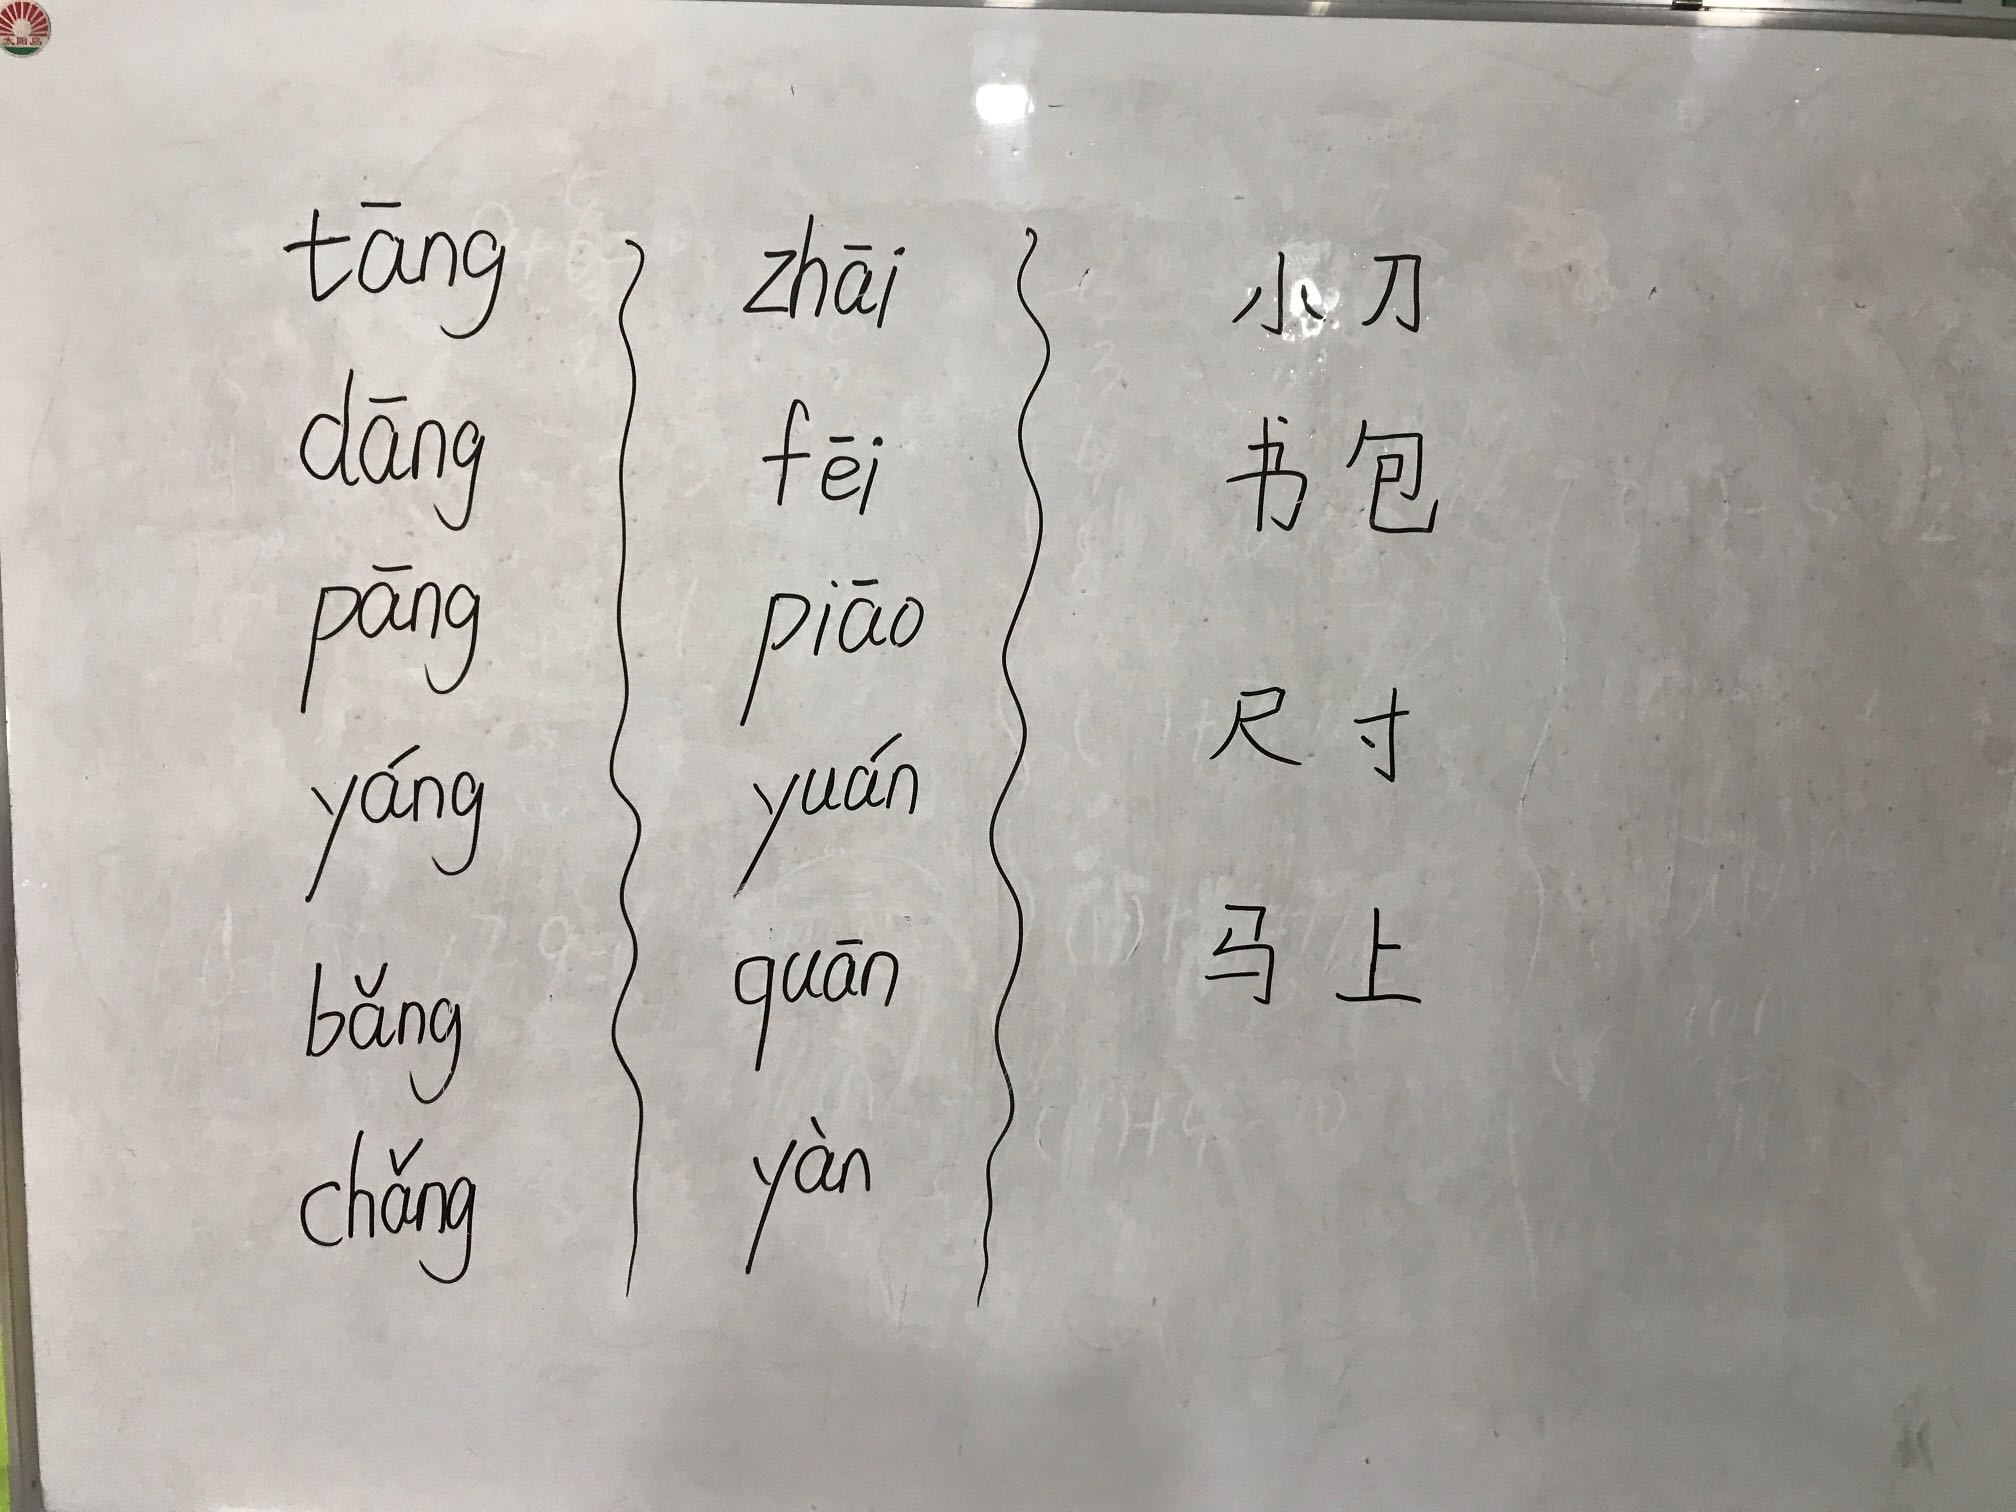 太阳岛
tāng
dāng
pāng
yáng
bǎng
chǎng
zhāi
fēi
piāo
yuán
quān
yàn
小刀
书包
尺寸
马上